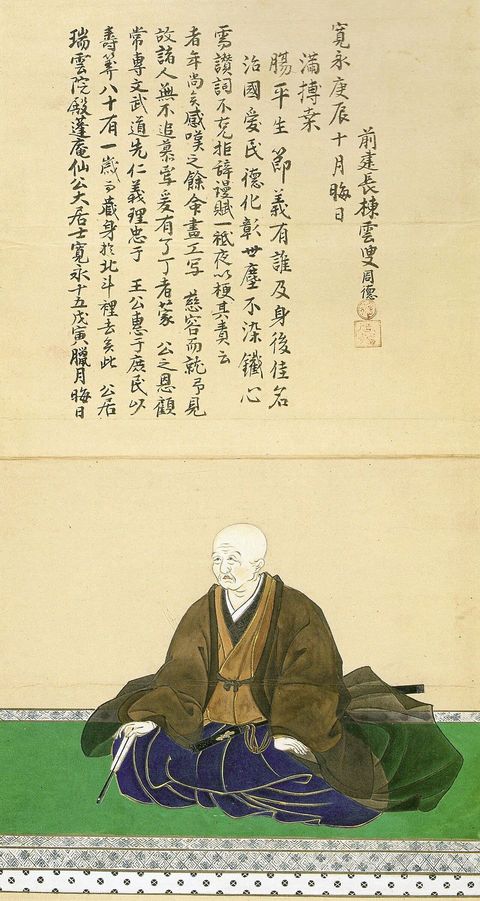 瑞雲院殿蓬庵仙公大居士寛永十五戊寅臘月晦日
壽筭八十有一歳而藏身於北斗裡去矣此 公居
常專文武道先仁義理忠于 王公惠于庶民以
故諸人無不追慕焉爰有了丁者蒙 公之恩顧
者年尚矣感嘆之餘命畫工写 慈容而就予見
需讃詞不克拒辞謾賦一祇夜以梗其責云
治國愛民德化彰世塵不染鐵心
腸平生節義有誰及身後佳名
滿搏桒
寛永庚辰十月晦日
前建長棟雲叟周德